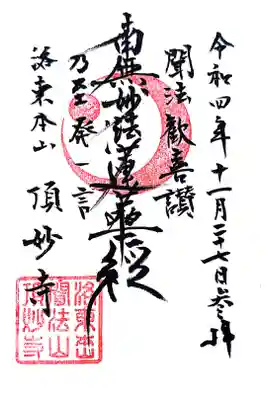 令和四年十一月二十七日参拝
聞法歓喜讃
南無妙法蓮華経
乃至発一言
洛東本山
頂妙寺
洛東山
聞法山
頂妙寺